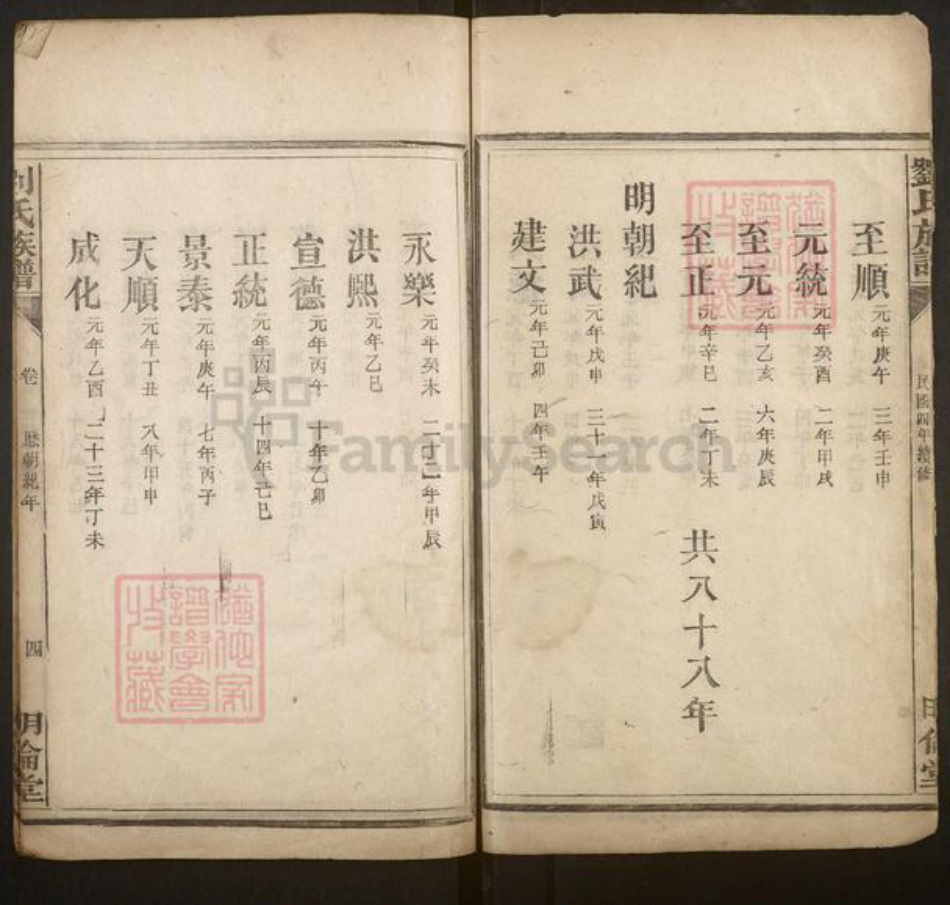 劉氏族譜
民國四年續修
明倫堂
至順 元年庚午 三年壬申
元統 元年癸酉 二年甲戌
至元 元年乙亥 六年庚辰
至正 元年辛巳 二年丁未 共八十八年
明朝紀
洪武 元年戊申 三十一年戊寅
建文 元年己卯 四年壬午
永樂 元年癸未 二十二年甲辰
洪熙 元年乙巳
宣德 元年丙午 十年乙卯
正統 元年丙辰 十四年己巳
景泰 元年庚午 七年丙子
天順 元年丁丑 八年甲申
成化 元年乙酉 二十三年丁未
劉氏族譜
卷
歷朝紀年
四
明倫堂
譜學會
收藏
FamilySearch